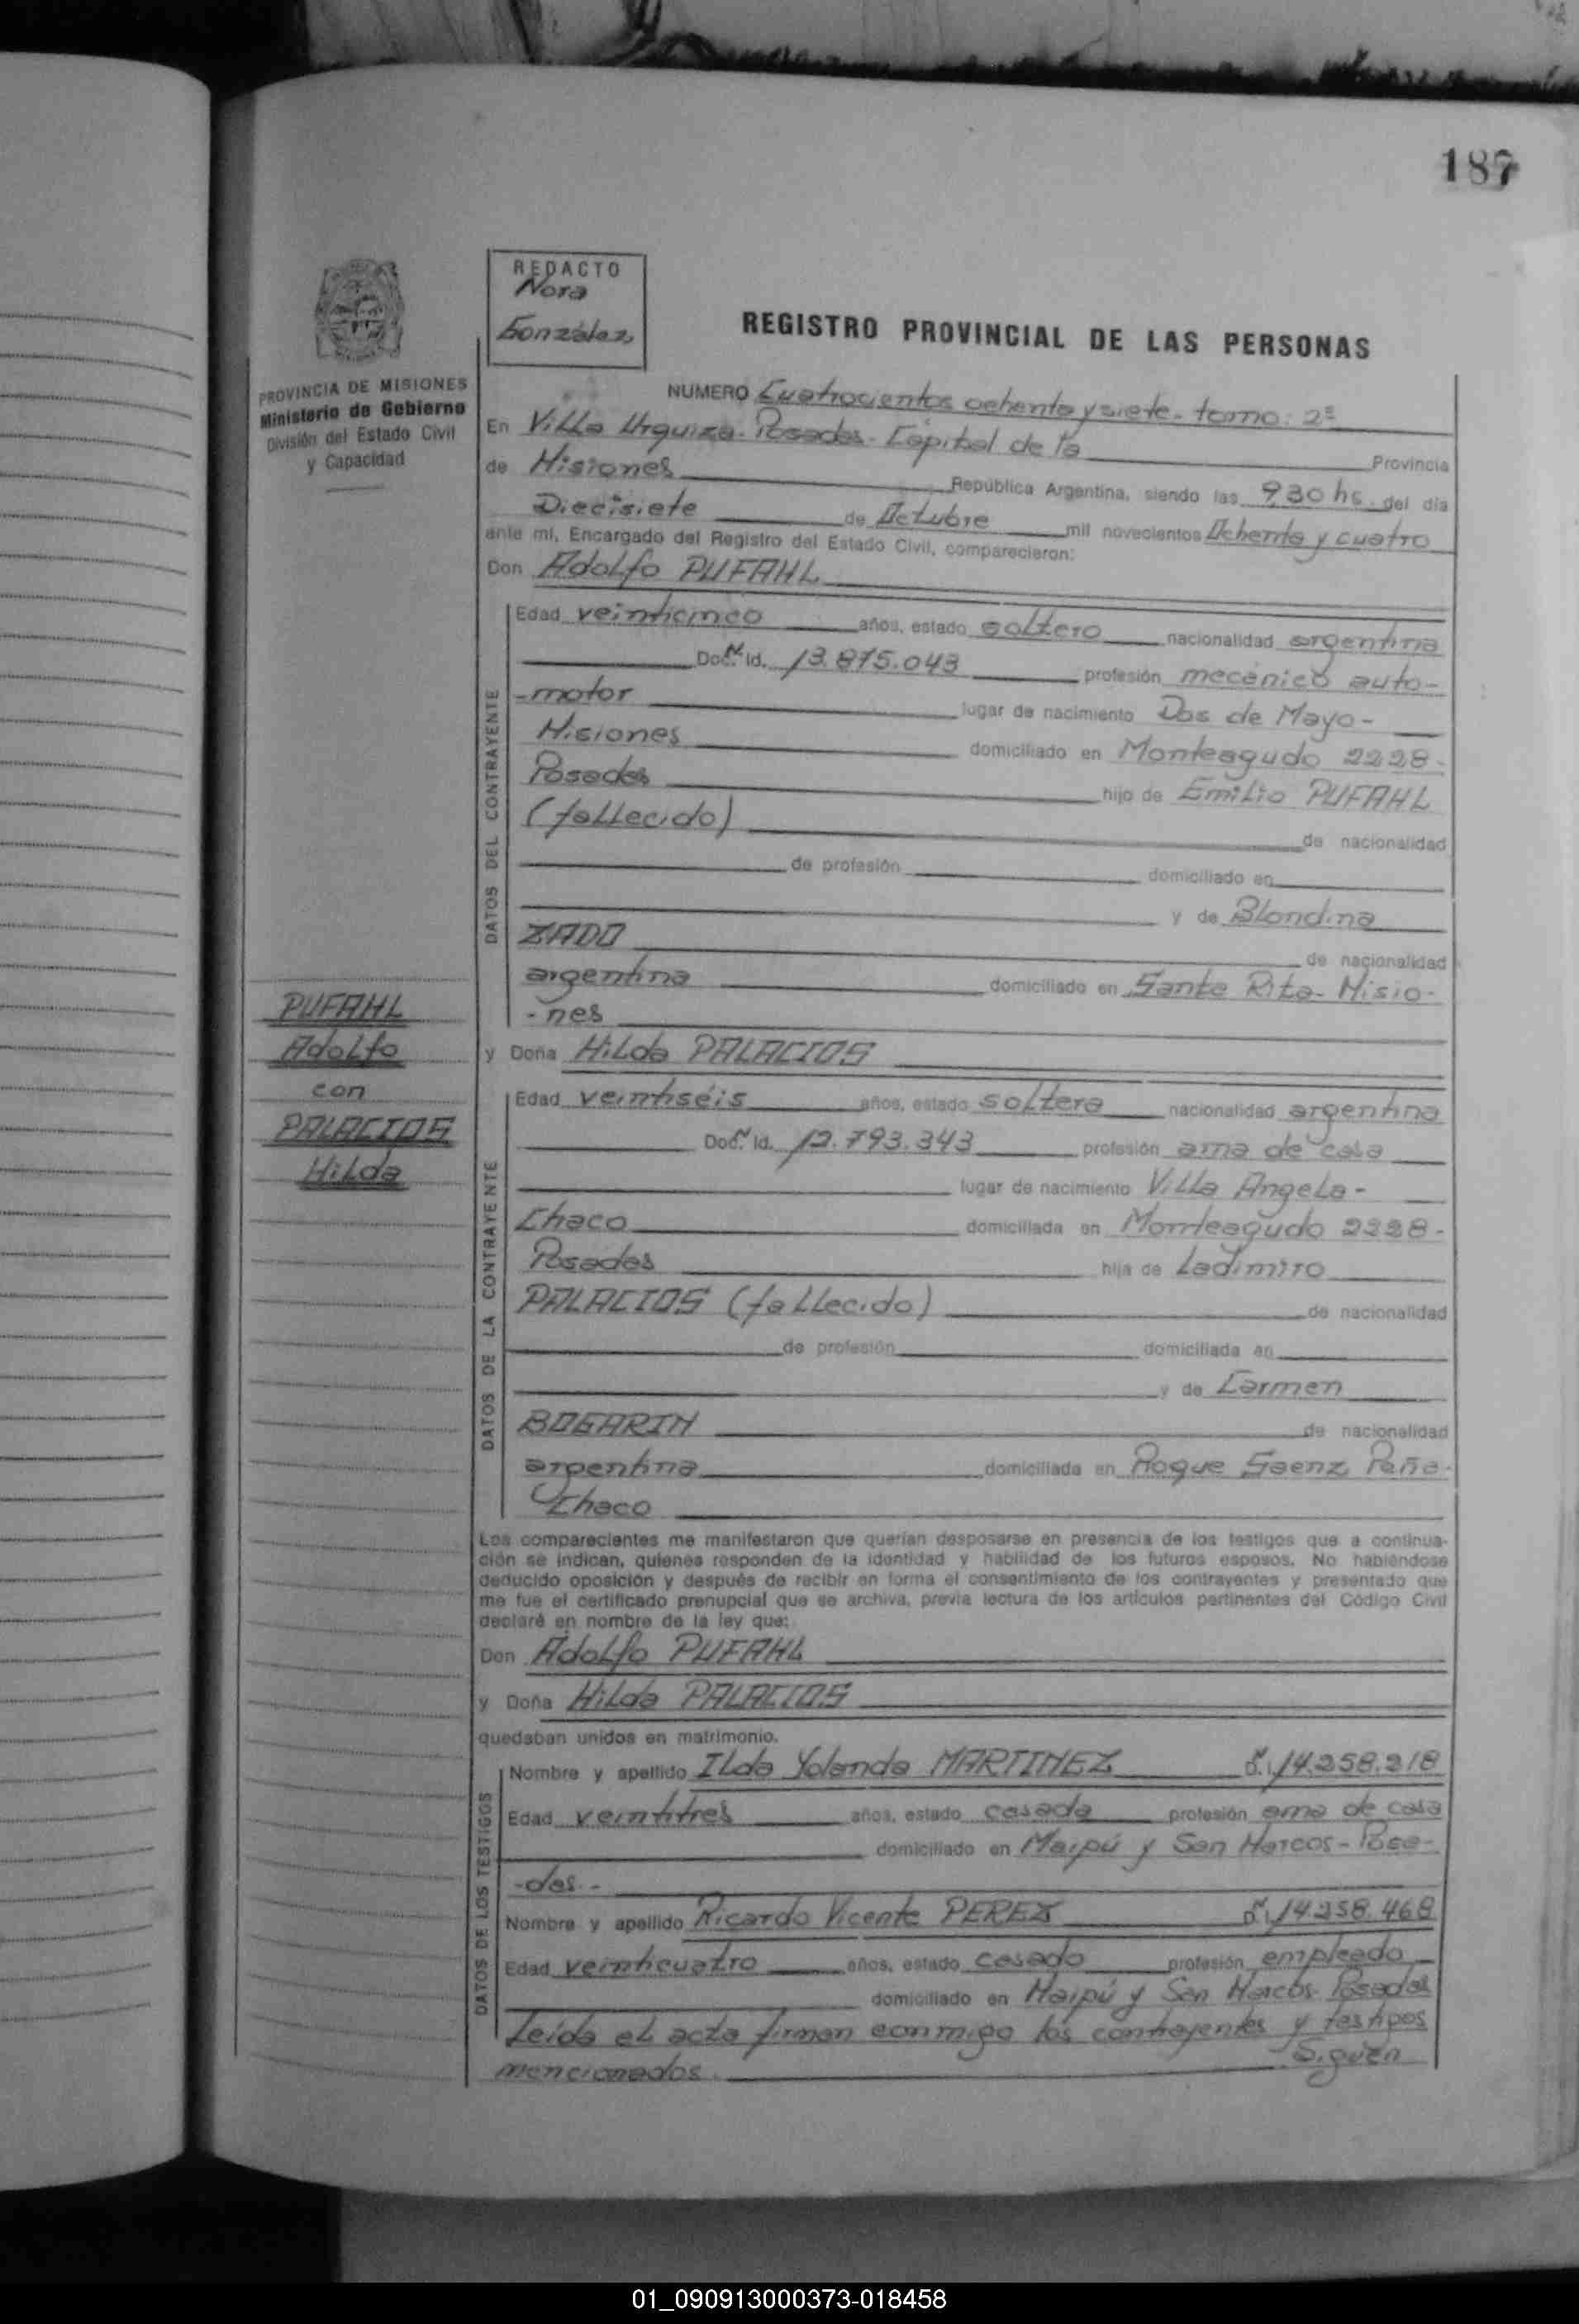 187
REDACTO
Nora
González
REGISTRO PROVINCIAL DE LAS PERSONAS
PROVINCIA DE MISIONES
Ministerio de Gobierno
División del Estado Civil
y Capacidad
NUMERO Cuatrocientos ochenta y siete - tomo: 2º
En Villa Urquiza - Posadas - Capital de la Provincia
de Misiones República Argentina, siendo las 9 30 hs. del día
Diecisiete de Octubre mil novecientos Ochenta y cuatro
ante mi, Encargado del Registro del Estado Civil, comparecieron:
Don Adolfo PUFAHL
DATOS DEL CONTRAYENTE
Edad veinticinco años, estado soltero nacionalidad argentina
Doc. Id. 13.875.043 profesión mecánico auto-
-motor lugar de nacimiento Dos de Mayo -
Misiones domiciliado en Monteagudo 2228 -
Posadas hijo de Emilio PUFAHL
(fallecido) de nacionalidad
de profesión domiciliado en
y de Blondina
ZADO de nacionalidad
argentina domiciliado en Santa Rita - Misio-
- nes
PUFAHL
Adolfo
con
PALACIOS
Hilda
y Doña Hilda PALACIOS
DATOS DE LA CONTRAYENTE
Edad veintiséis años, estado soltera nacionalidad argentina
Doc. Id. 12.793.343 profesión ama de casa
lugar de nacimiento Villa Angela -
Chaco domiciliada en Monteagudo 2228 -
Posadas hija de Ladimiro
PALACIOS (fallecido) de nacionalidad
de profesión domiciliada en
y de Carmen
BOGARIN de nacionalidad
argentina domiciliada en Roque Saenz Peña -
Chaco
Los comparecientes me manifestaron que querían desposarse en presencia de los testigos que a continua-
ción se indican, quienes responden de la identidad y habilidad de los futuros esposos. No habiéndose
deducido oposición y después de recibir en forma el consentimiento de los contrayentes y presentado que
me fue el certificado prenupcial que se archiva, previa lectura de los artículos pertinentes del Código Civil
declaré en nombre de la ley que:
Don Adolfo PUFAHL
y Doña Hilda PALACIOS
quedaban unidos en matrimonio.
DATOS DE LOS TESTIGOS
Nombre y apellido Ilda Yolanda MARTINEZ 14.258.218
Edad veintitres años, estado casada profesión ama de casa
domiciliado en Maipú y San Marcos - Posa-
-das -
Nombre y apellido Ricardo Vicente PEREZ 14.258.468
Edad veinticuatro años, estado casado profesión empleado
domiciliado en Maipú y San Marcos - Posadas
Leída el acta firman conmigo los contrayentes y testigos
mencionados. Siguen
01_090913000373-018458